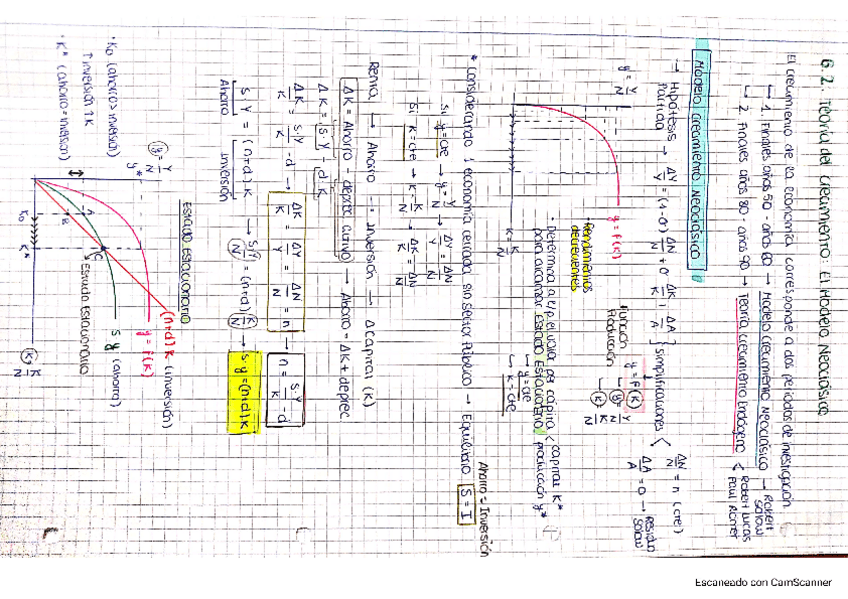 6.2. Teoría del Crecimiento: El Modelo Neoclásico
El crecimiento de la economía corresponde a dos periodos de investigación
→ 1. Finales años 50 - años 60 → Modelo Crecimiento Neoclásico → Robert Solow
→ 2. Finales años 80 - años 90 → Teoría Crecimiento Endógeno < Robert Lucas Paul Romer
Modelo Crecimiento Neoclásico
→ Hipótesis Partida → ΔY/Y = (1-θ) ΔN/N + θ ΔK/K + ΔA/A } simplificaciones < ΔN/N = n (cte)
ΔA/A = 0 → Residuo Solow
y = Y/N
y = f(k)
Función Producción
y = f(k)
y = Y/N
k = K/N
Rendimientos decrecientes
k = K/N
• Determina a c/p el valor per cápita < capital k* producción y*
para alcanzar Estado Estacionario
→ y = cte
→ k = cte
* Considerando 1 economía cerrada sin Sector Público → Equilibrio S = I
Ahorro = Inversión
Si y = cte → y = Y/N → ΔY/Y = ΔN/N
Si k = cte → k = K/N → ΔK/K = ΔN/N
Renta → Ahorro → Inversión → Δ Capital (K)
ΔK = Ahorro - deprec activo → Ahorro = ΔK + deprec
ΔK = s·Y - d·K
ΔK/K = s·Y/K - d → ΔK/K = ΔY/Y = ΔN/N = n → n = s·Y/K - d
s·Y = (n+d)·K → s·Y/N = (n+d) K/N → s·y = (n+d)k
Ahorro
Inversión
Estado Estacionario
y = Y/N
y*
(n+d)k (inversión)
y = f(k)
s·y (ahorro)
A
B
C
Estado estacionario
k0
k*
k = K/N
• k0 (ahorro > inversión)
↑ inversión ↑ K
• k* (ahorro = inversión)
Escaneado con CamScanner